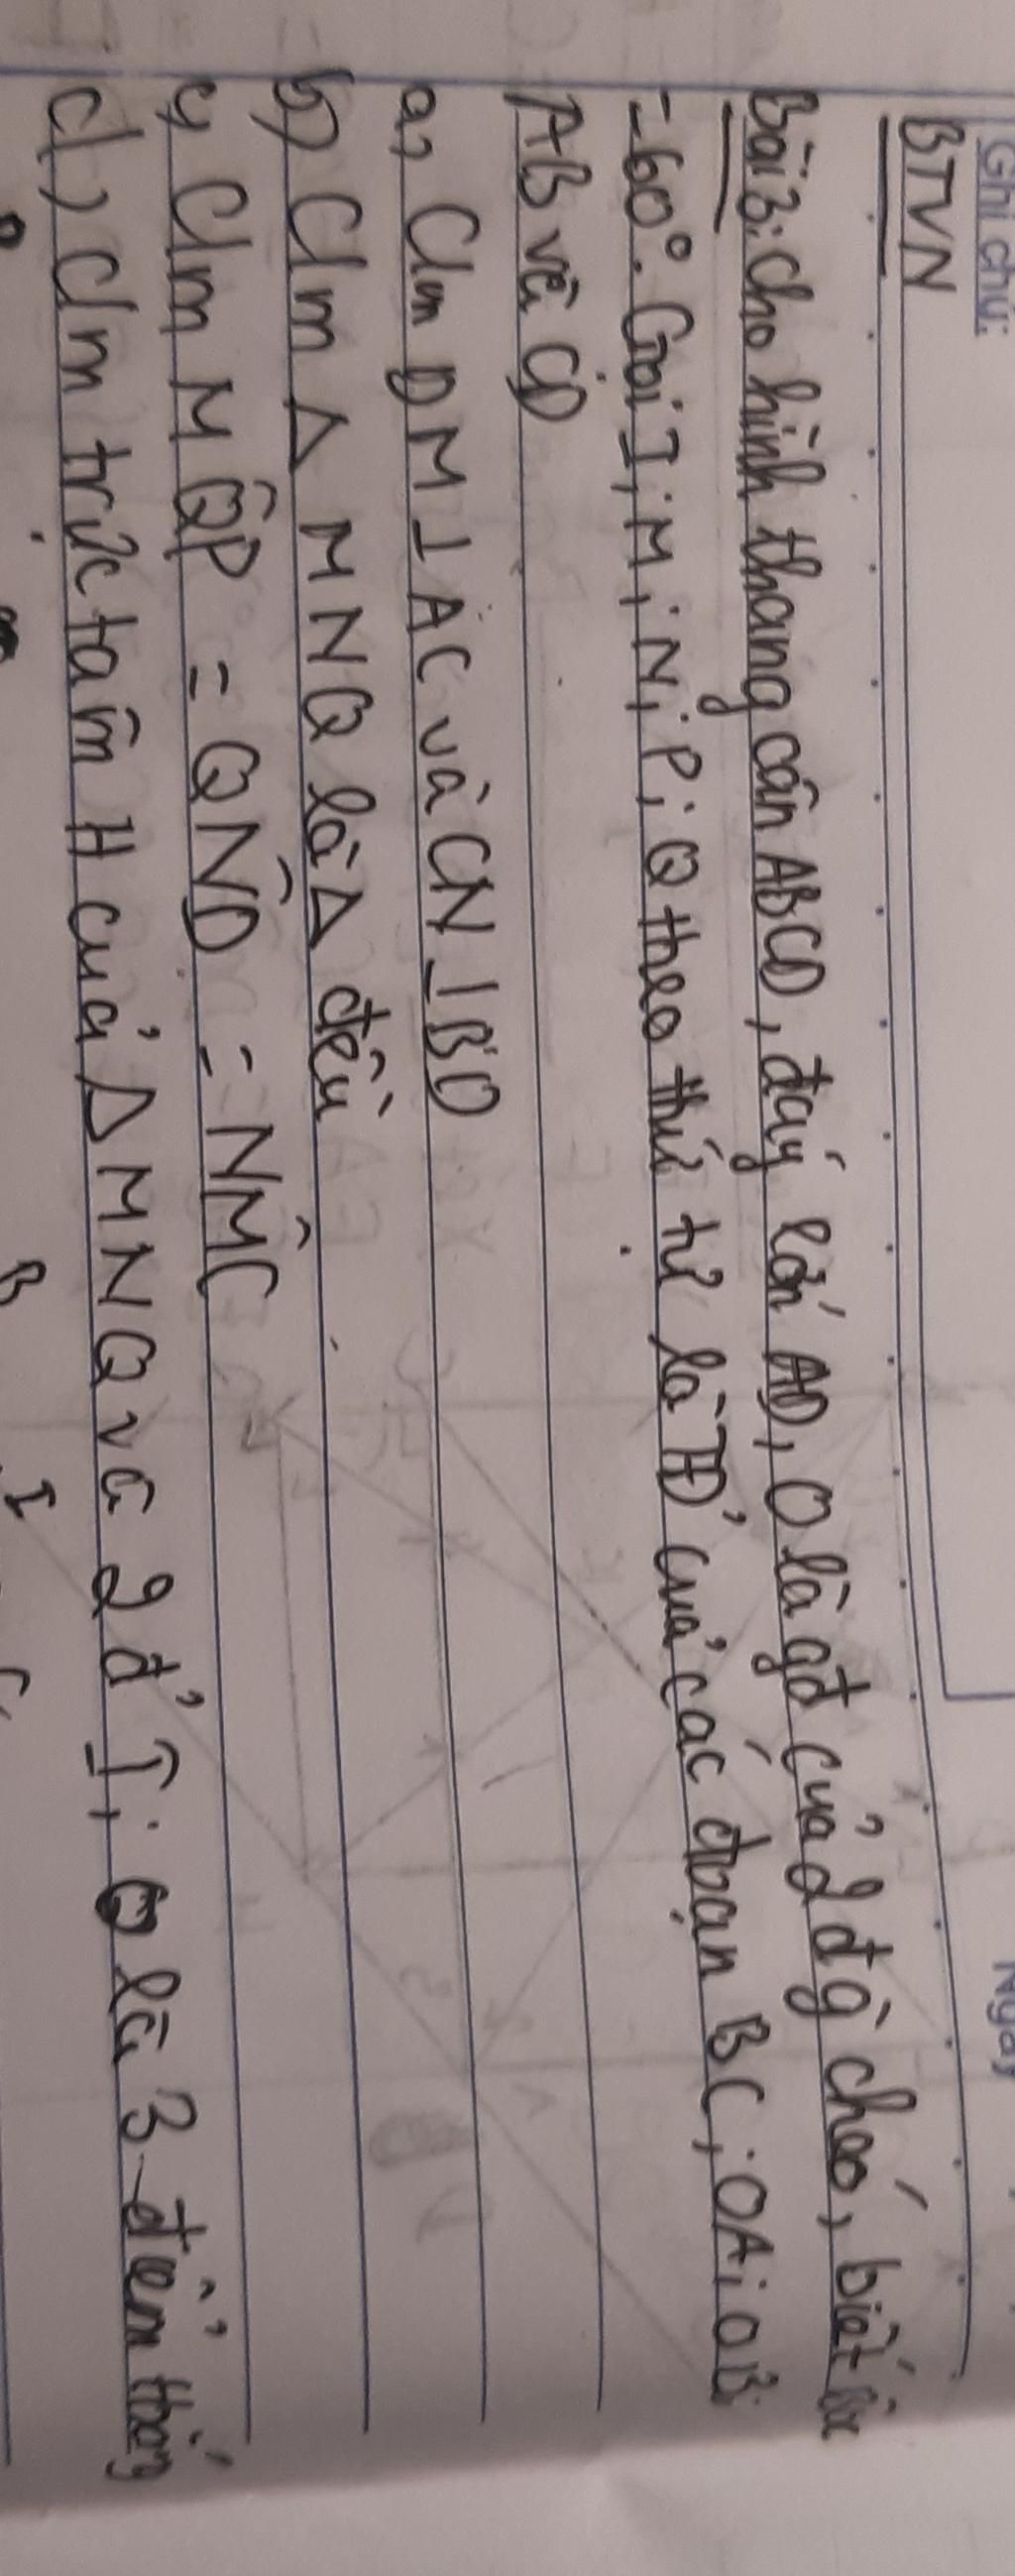 Ghi chú:
Ngày
BTVN
Bài 3: cho hình thang cân ABCD, đáy lớn AD, O là gđ của 2 đg chéo, biết
= 60°. Gọi I; M; N; P; Q theo thứ tự là TĐ' của các đoạn BC; OA; OB;
AB và CD
a, Cm DM ⊥ AC và CN ⊥ BD
b, Cm Δ MNQ là Δ đều
c, Cm MQ̂P = QN̂D = NM̂C
d, Cm trực tâm H của Δ MNQ và 2 đ' I; O là 3 điểm thẳng
B I C